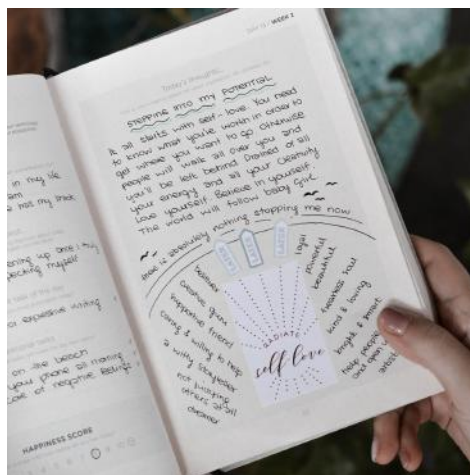 WEEK 2
Today's thoughts...
STEPPING INTO MY POTENTIAL
It all starts with self-love. You need
to know what you're worth in order to
get where you want to go otherwise
people will walk all over you and
you'll be left behind drained of all
your energy and all your creativity
Love yourself. Believe in yourself.
The world will follow baby girl
there is absolutely nothing stopping me now
believer
creative guru
supportive friend
caring & willing to help
a witty storyteller
not judging
others at all
dreamer
RADIATE
self-love
loyal
powerful
beautiful
fearless soul
kind & loving
bright & smart
help people
and open up
in my life
ening up once I try
pecting myself
expressive writing
on the beach
your phone as
negative beliefs
HAPPINESS SCORE